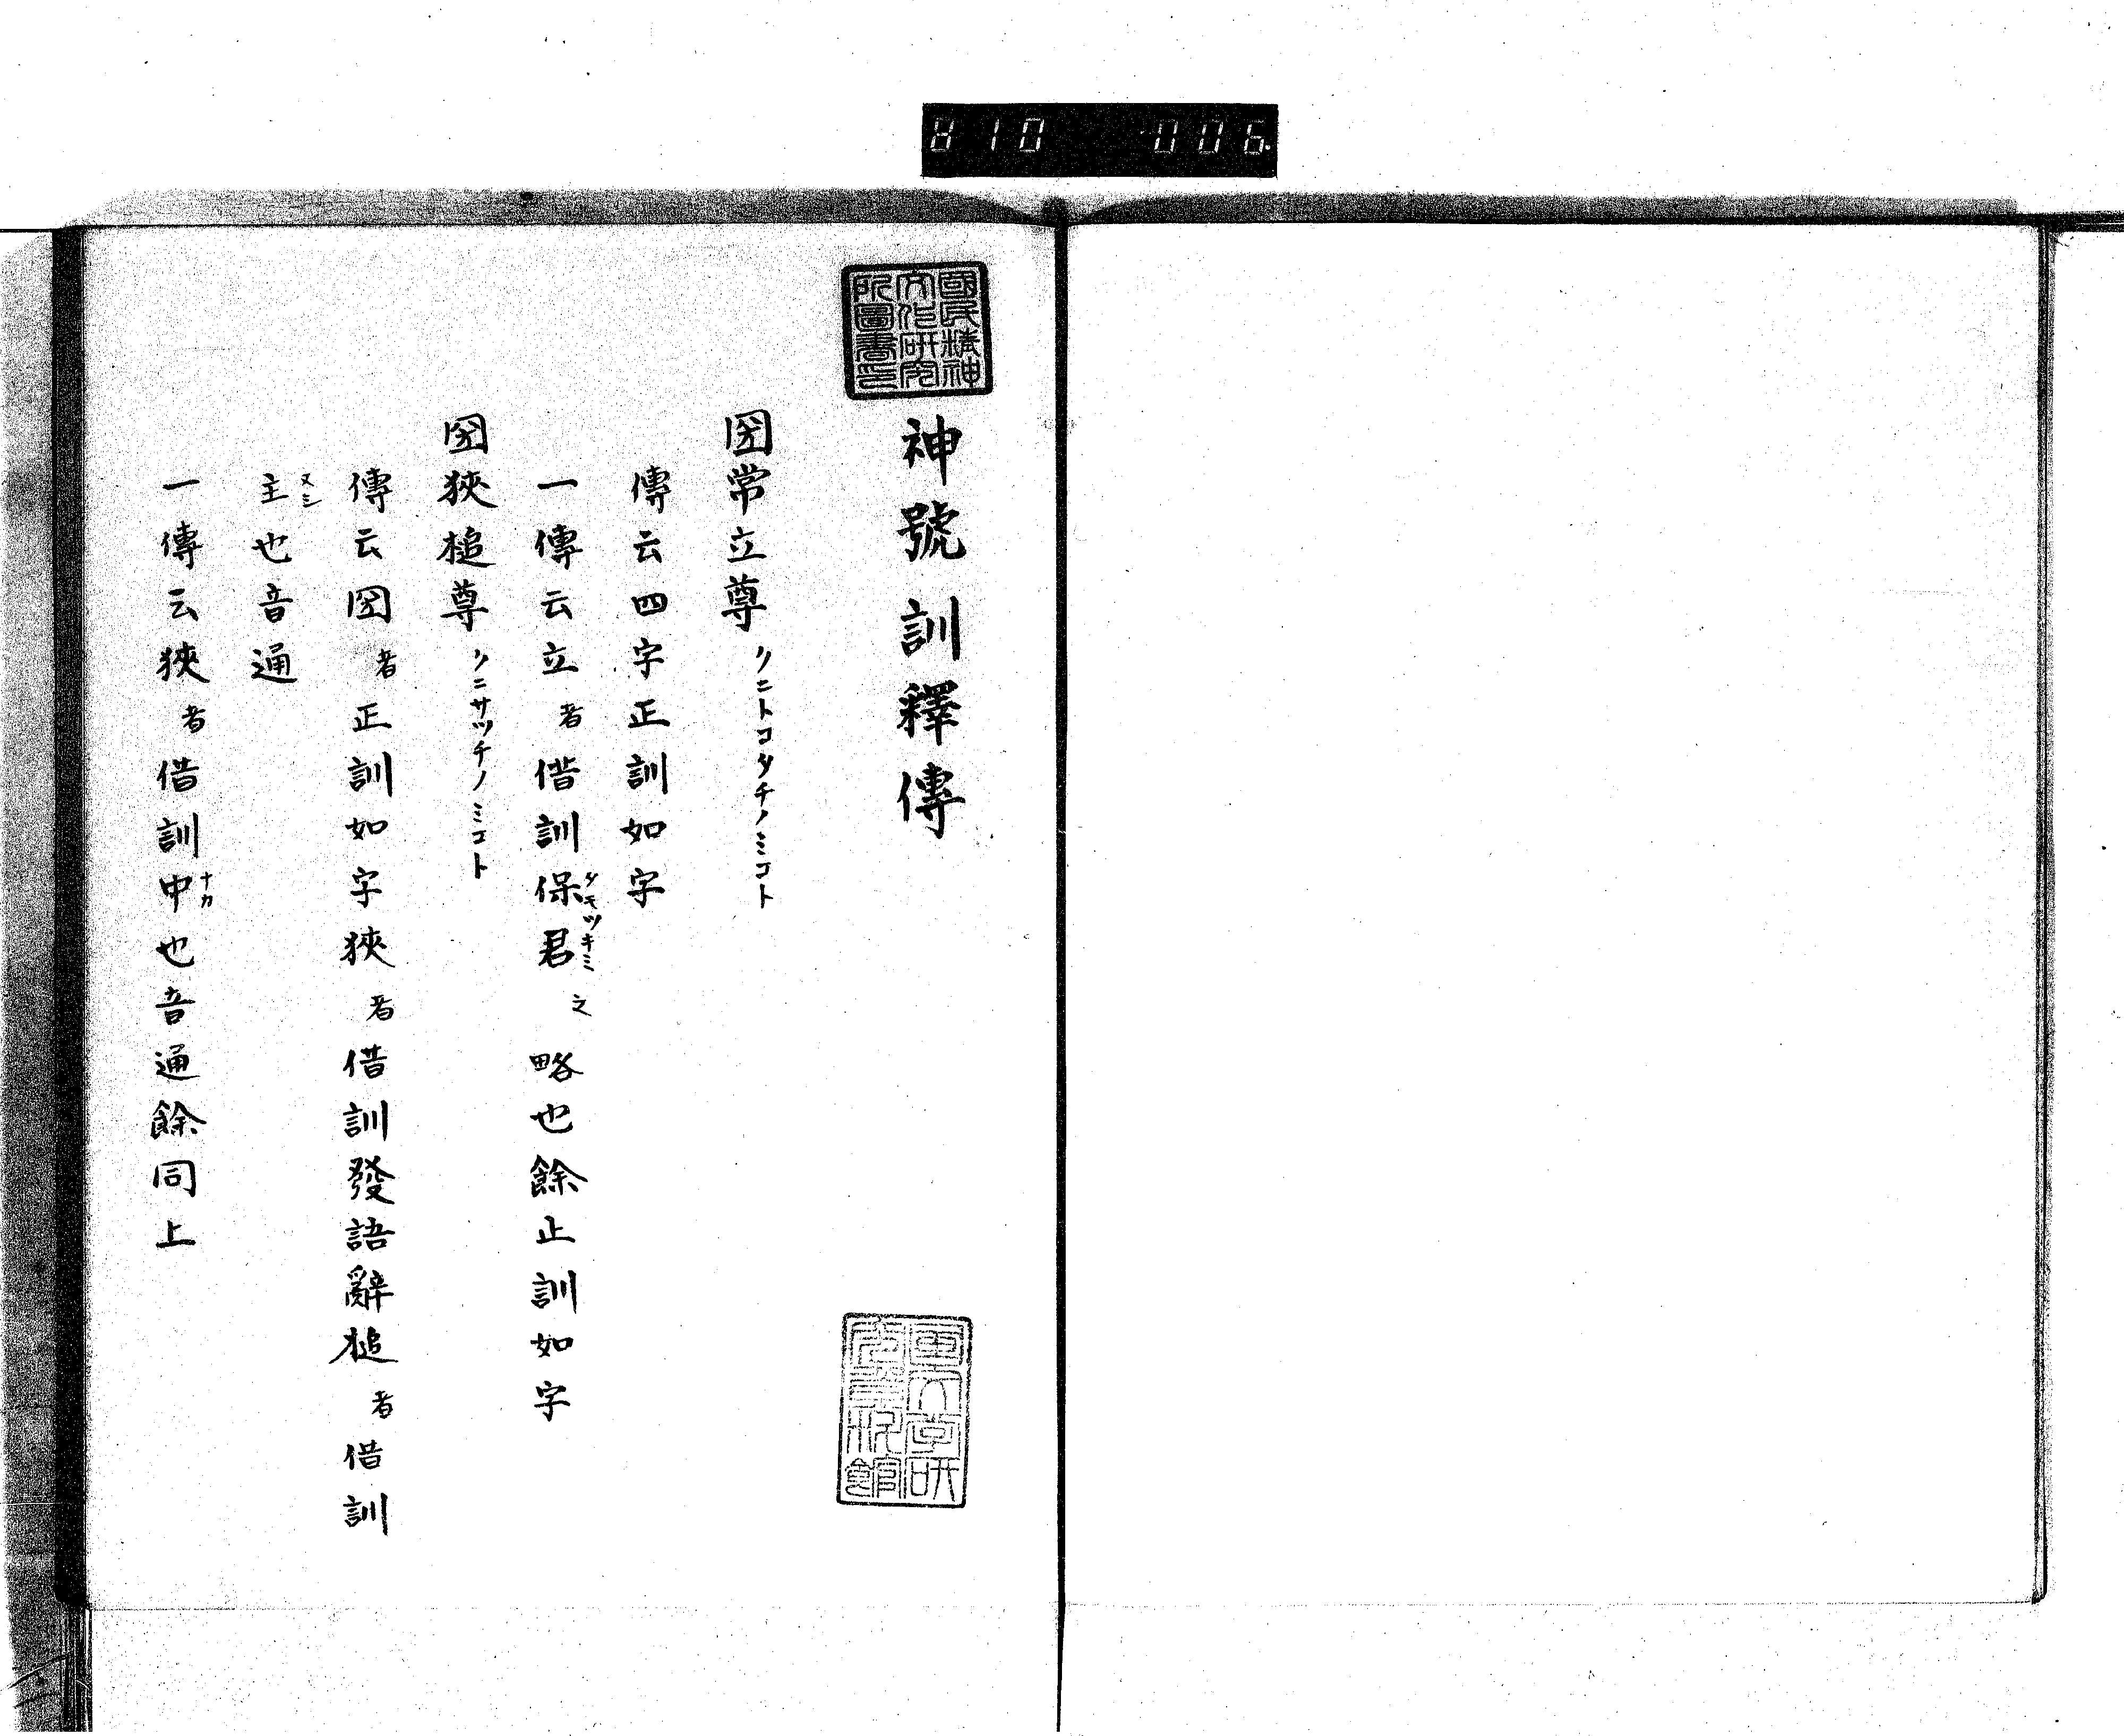 810 006
神號訓釋傳
国常立尊 クニトコタチノミコト
傳云四字正訓如字
一傳云立者借訓保君タモツキミ之略也餘止訓如字
国狹槌尊 クニサツチノミコト
傳云国者正訓如字狹者借訓發語辭槌者借訓
主ヌシ也音通
一傳云狹者借訓中ナカ也音通餘同上
國民精神文化研究所圖書印